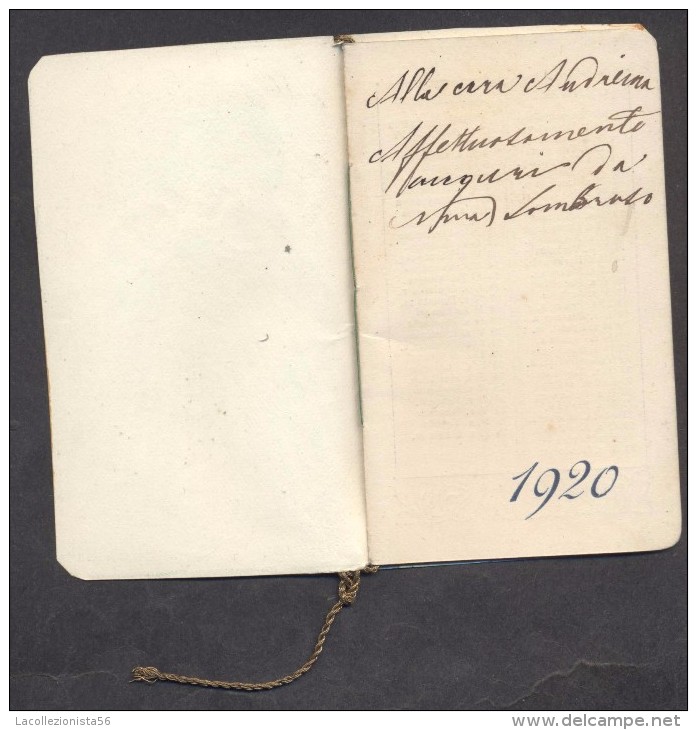 Alla cara Andreina
Affettuosamente
auguri da
Lombroso
1920
Lacollezionista56
delcampe.net